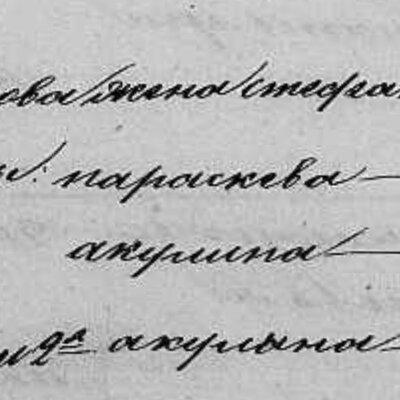 ова жена стефа
: параскева
акулина
2я акулына